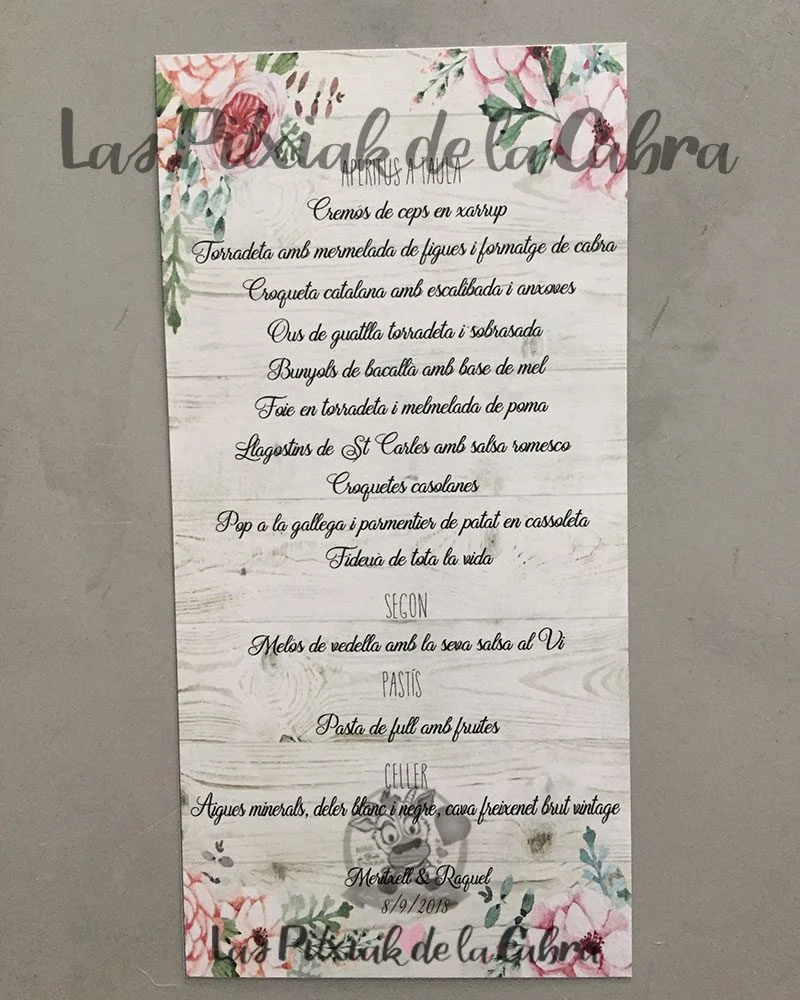 Las Pitxiak de la Cabra
APERITUS A TAULA
Cremós de ceps en xarrup
Torradeta amb mermelada de figues i formatge de cabra
Croqueta catalana amb escalibada i anxoves
Ous de guatlla torradeta i sobrasada
Bunyols de bacallà amb base de mel
Foie en torradeta i melmelada de poma
Llagostins de St Carles amb salsa romesco
Croquetes casolanes
Pop a la gallega i parmentier de patat en cassoleta
Fideuà de tota la vida
SEGON
Melós de vedella amb la seva salsa al Vi
PASTÍS
Pasta de full amb fruites
CELLER
Aigues minerals, deler blanc i negre, cava freixenet brut vintage
Meritxell & Raquel
8/9/2018
Las Pitxiak de la Cabra